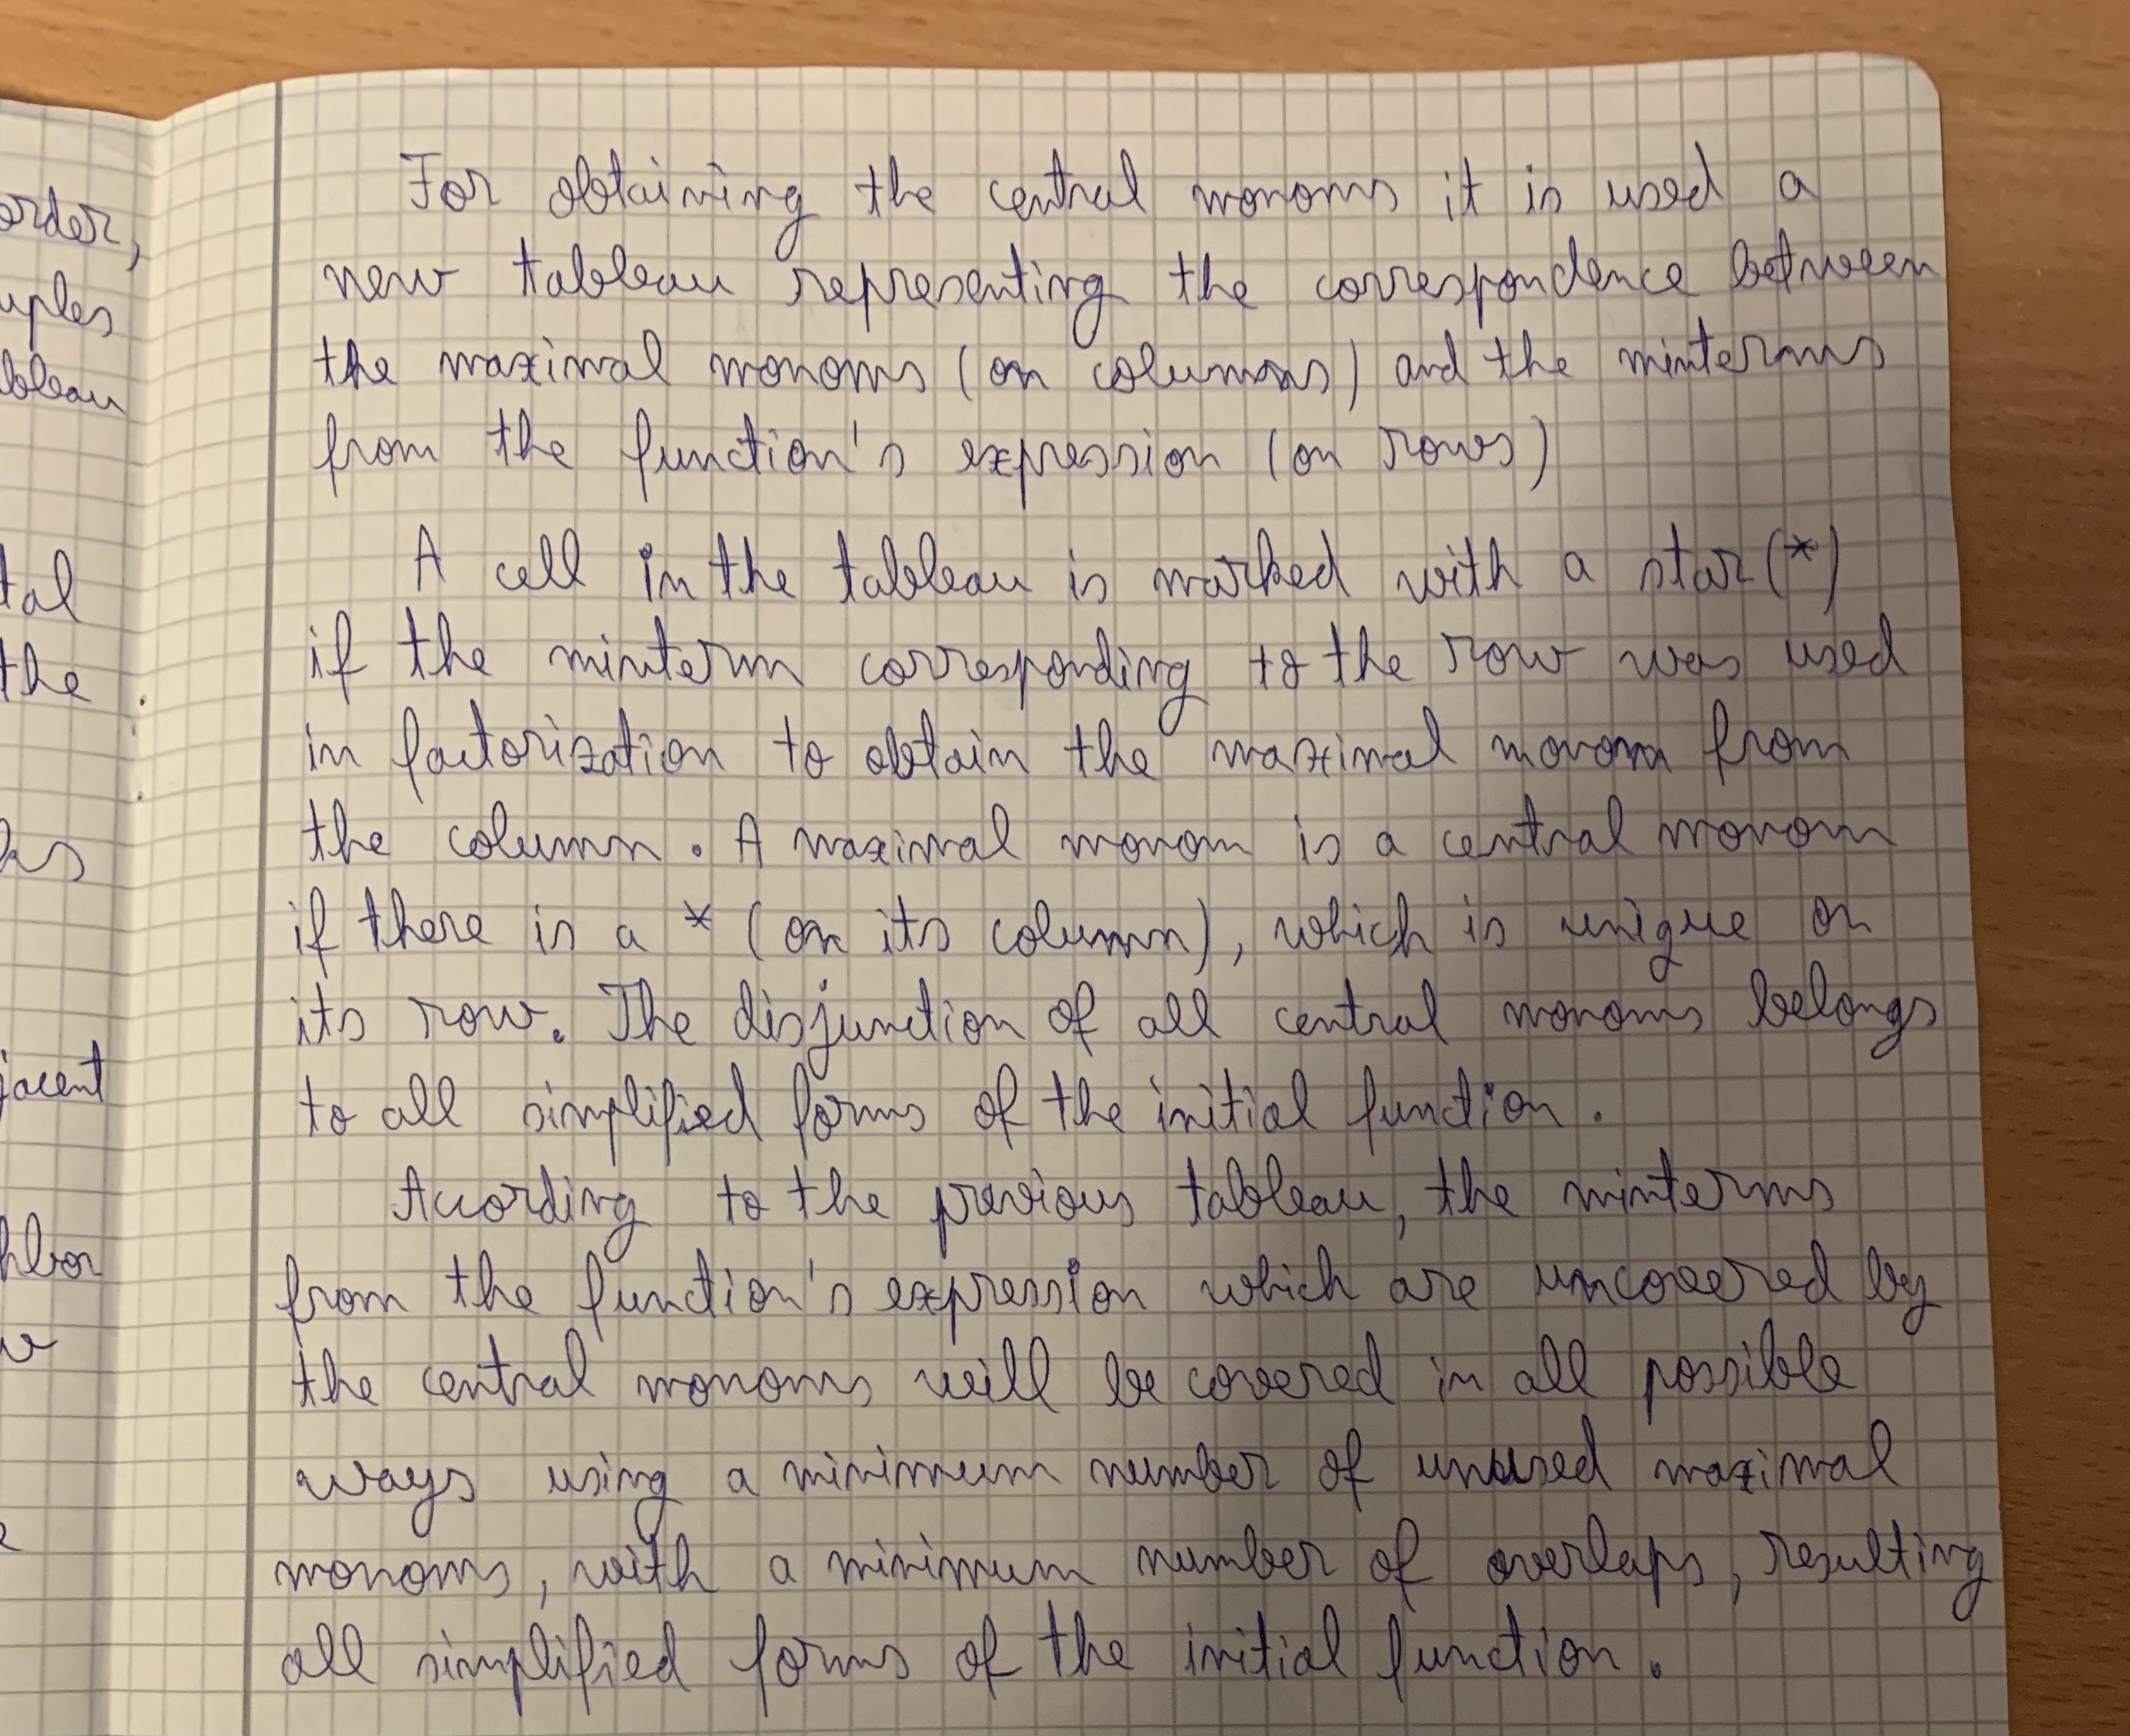 For obtaining the central monoms it is used a
new tableau representing the correspondence between
the maximal monoms (on columns) and the minterms
from the function's expression (on rows)
A cell in the tableau is marked with a star (*)
if the minterm corresponding to the row was used
in factorization to obtain the maximal monom from
the column. A maximal monom is a central monom
if there is a * (on its column), which is unique on
its row. The disjunction of all central monoms belongs
to all simplified forms of the initial function.
According to the previous tableau, the minterms
from the function's expression which are uncovered by
the central monoms will be covered in all possible
ways using a minimum number of unused maximal
monoms, with a minimum number of overlaps, resulting
all simplified forms of the initial function.
order,
uples
bleau
tal
the
jacent
hbor